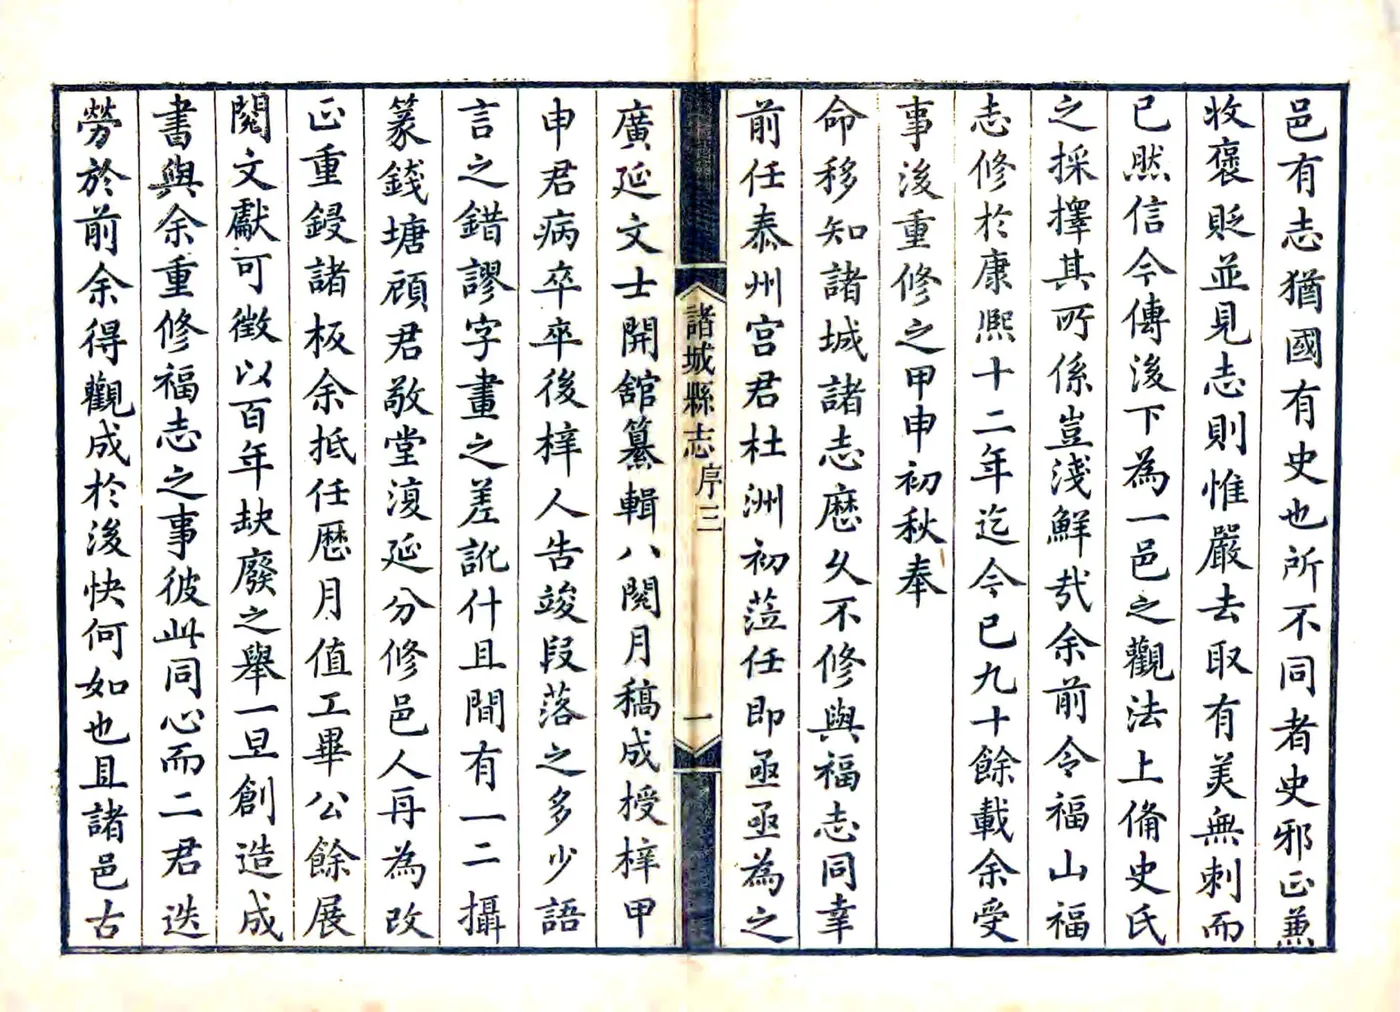 邑有志猶國有史也所不同者史邪正兼
收褒貶並見志則惟嚴去取有美無刺而
已然信今傳後下為一邑之觀法上備史氏
之採擇其所係豈淺鮮哉余前令福山福
志修於康熙十二年迄今已九十餘載余受
事後重修之甲申初秋奉
命移知諸城諸志歷久不修與福志同幸
前任泰州宮君杜洲初蒞任即亟亟為之
諸城縣志
序三
一
廣延文士開舘纂輯八閱月稿成授梓甲
申君病卒卒後梓人告竣段落之多少語
言之錯謬字畫之差訛什且間有一二攝
篆錢塘顧君敬堂復延分修邑人再為改
正重鋟諸板余抵任歷月值工畢公餘展
閱文獻可徵以百年缺廢之舉一旦創造成
書與余重修福志之事彼此同心而二君迭
勞於前余得觀成於後快何如也且諸邑古